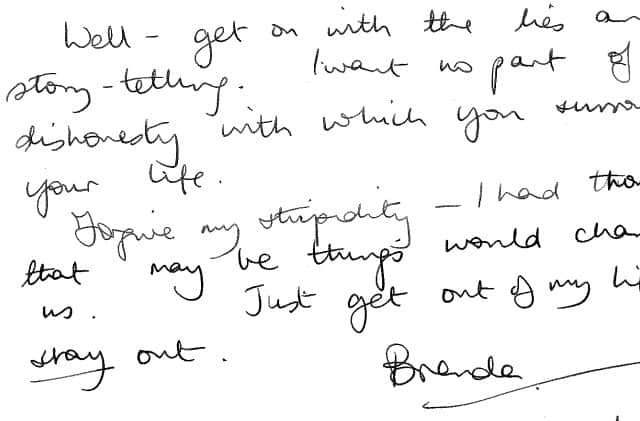 Well - get on with the lies an
story-telling. I want no part of
dishonesty with which you surro
your life.
Forgive my stupidity - I had tho
that may be things would cha
us. Just get out of my li
stay out.
Brenda